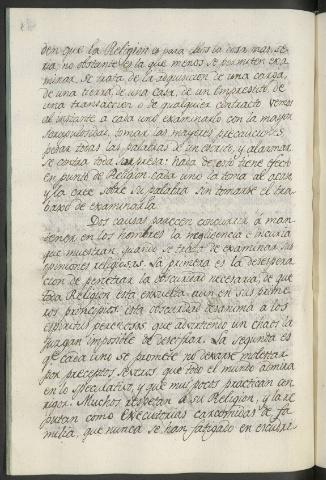 den que la Religion es para ellos la cosa mas se-
ria; no obstante es la que menos se permiten exa
minar. Se trata de la adquisicion de una carga,
de una tierra, de una casa, de un Emprestito, de
una transaccion o de qualquier contracto vemos
al instante a cada uno examinarlo con la mayor
escrupulosidad, tomar las mayores precauciones
pesar todas las palabras de un escrito, y alarmar
se contra toda sorpresa: nada de esto tiene efecto
en punto de Religion cada uno la toma al acaso
y la cree sobre su palabra sin tomarse el tra-
bajo de examinarla.
Dos causas parecen concurrir á man-
tener en los hombres la negligencia e incuria
que muestran, quando se trata de examinar sus
opiniones religiosas. La primera es la desespera
cion de penetrar la obscuridad necesaria, de que
toda Religion está envuelta aun en sus prime-
ros principios esta obscuridad desanima a los
espiritus perezosos que advirtiendo un chaos la
juzgan imposible de desechar. La segunda es
qe. cada uno se promete no dexarse molestar
por preceptos severos que todo el mundo admira
en lo speculativo, y que mui pocos practican con
rigor. Muchos respetan a su Religion, y la re
putan como executorias carcomidas de fa
milia, que nunca se han fatigado en escudri-